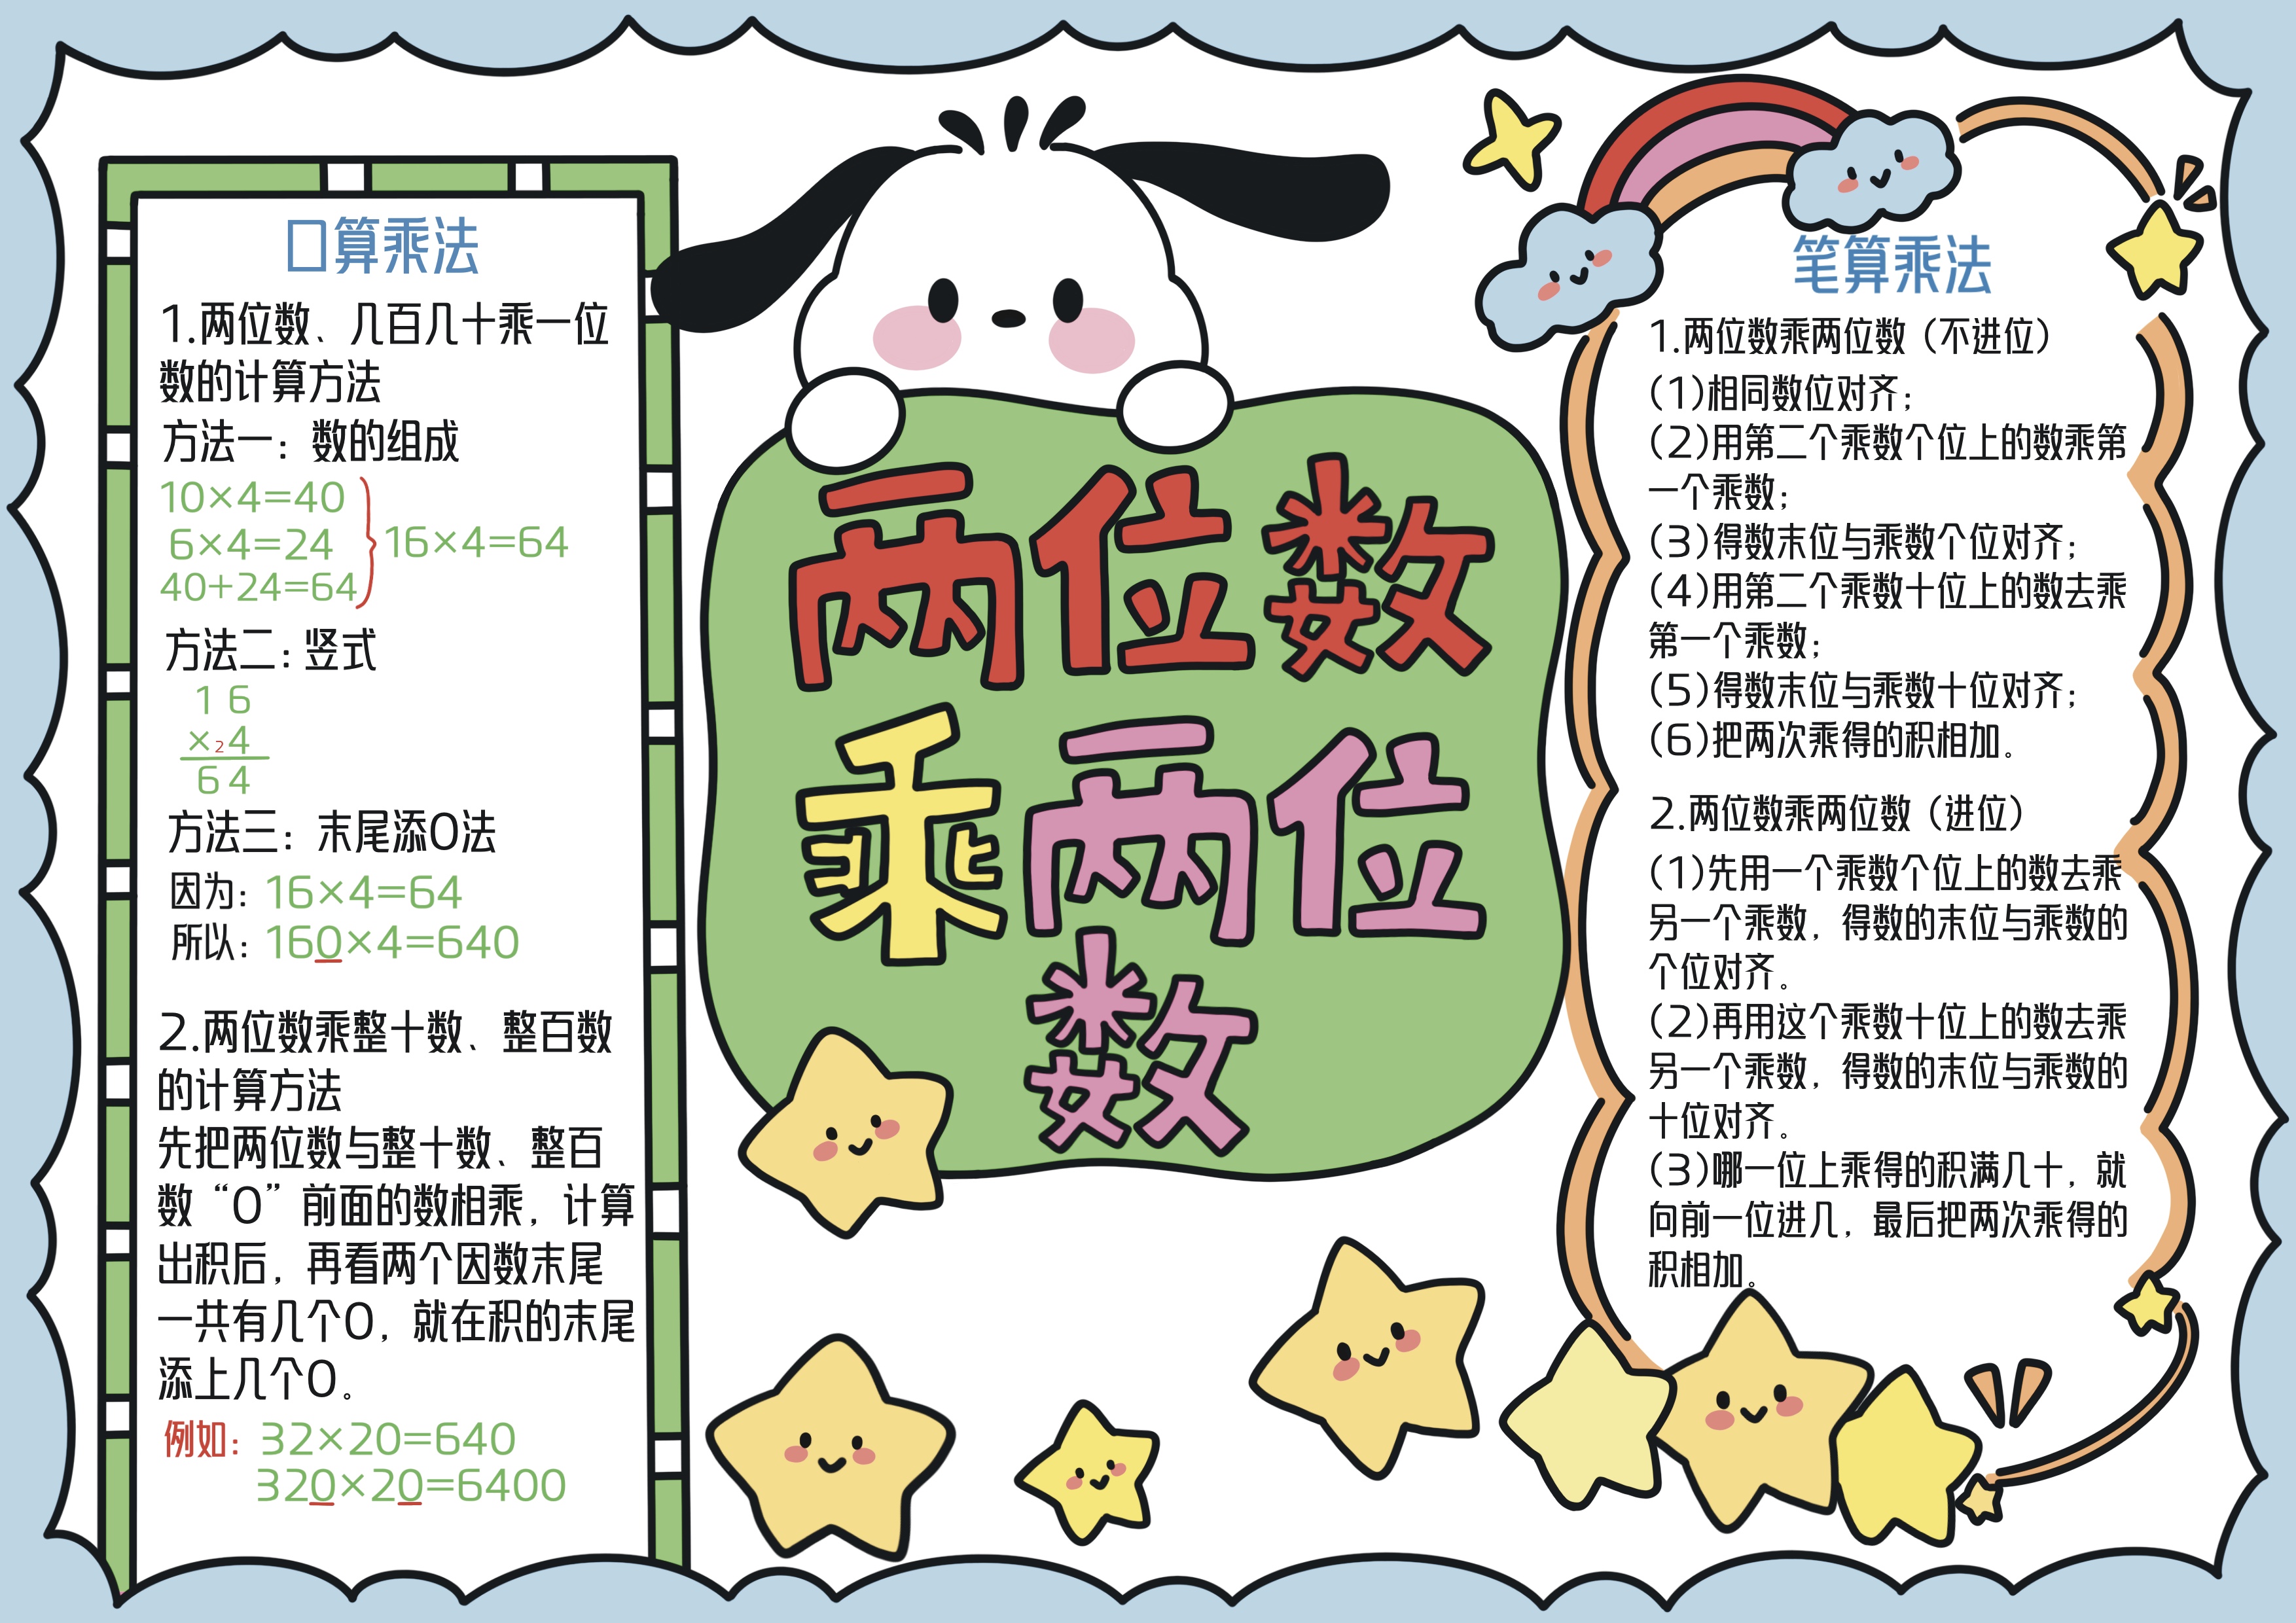 口算乘法
1.两位数、几百几十乘一位
数的计算方法
方法一：数的组成
10×4=40
6×4=24
40+24=64
16×4=64
方法二：竖式
1 6
×24
6 4
方法三：末尾添0法
因为：16×4=64
所以：160×4=640
2.两位数乘整十数、整百数
的计算方法
先把两位数与整十数、整百
数“0”前面的数相乘，计算
出积后，再看两个因数末尾
一共有几个0，就在积的末尾
添上几个0。
例如：32×20=640
320×20=6400
两位数
乘两位
数
笔算乘法
1.两位数乘两位数（不进位）
(1)相同数位对齐；
(2)用第二个乘数个位上的数乘第
一个乘数；
(3)得数末位与乘数个位对齐；
(4)用第二个乘数十位上的数去乘
第一个乘数；
(5)得数末位与乘数十位对齐；
(6)把两次乘得的积相加。
2.两位数乘两位数（进位）
(1)先用一个乘数个位上的数去乘
另一个乘数，得数的末位与乘数的
个位对齐。
(2)再用这个乘数十位上的数去乘
另一个乘数，得数的末位与乘数的
十位对齐。
(3)哪一位上乘得的积满几十，就
向前一位进几，最后把两次乘得的
积相加。